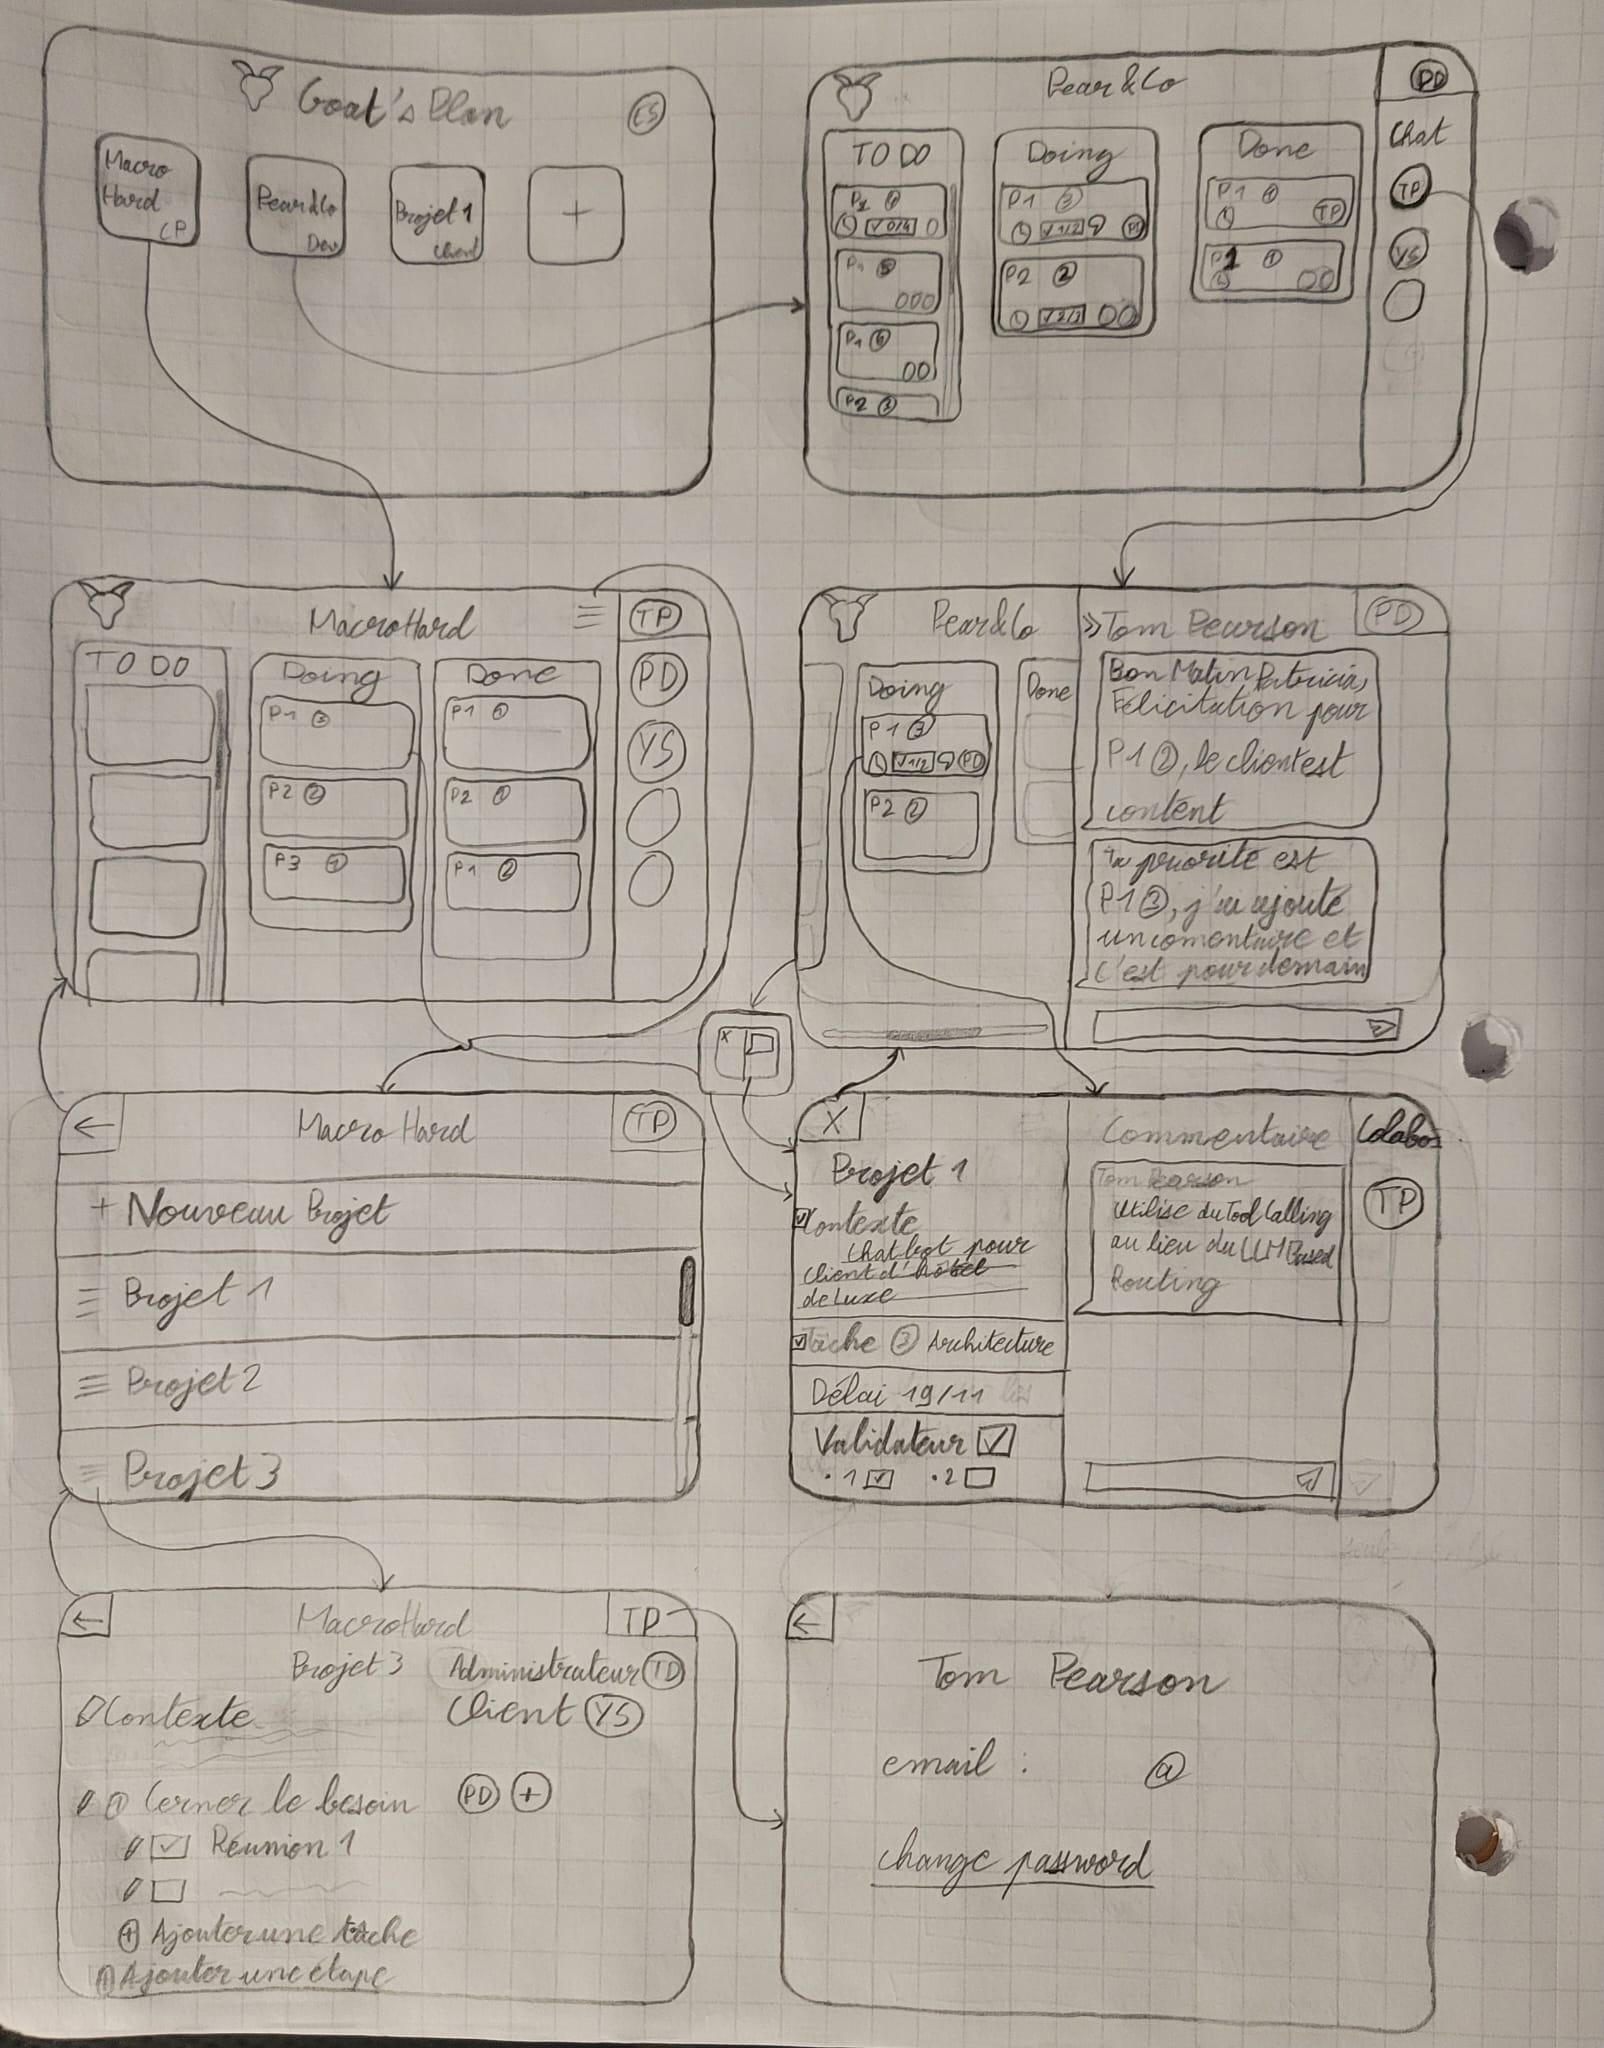 Goat's Plan
ES
Macro
Hard
CP
Pear&Co
Dev
Projet 1
Client
+
Pear&Co
PD
TO DO
P1 4
✓ 0/4
P1 5
P1 6
P2 3
Doing
P1 3
✓ 1/2
PD
P2 2
✓ 2/3
Done
P1 1
TP
P2 1
Chat
TP
YS
MacroHard
TP
TO DO
Doing
P1 3
P2 2
P3 1
Done
P1 1
P2 1
P1 2
PD
YS
Pear&Co
Doing
P1 3
✓ 1/2
PD
P2 2
Done
>> Tom Pearson
PD
Bon Matin Patricia,
Félicitation pour
P1 2, le client est
content
Ta priorité est
P1 3, j'ai ajouté
un comentaire et
c'est pour demain
X
←
MacroHard
TP
+ Nouveau Projet
Projet 1
Projet 2
Projet 3
X
Projet 1
Contexte
Chatbot pour
client d'hôtel
de Luxe
Tâche 3 Architecture
Délai 19/11
Validateur ✓
• 1 ✓ • 2
Commentaire
Tom Pearson
Utilise du Tool Calling
au lieu du LLM Based
Routing
Colabo
TP
←
MacroHard
TP
Projet 3
Administrateur TD
Contexte
Client YS
1 Cerner le besoin PD +
✓ Réunion 1
+ Ajouter une tâche
Ajouter une étape
←
Tom Pearson
email : @
change password